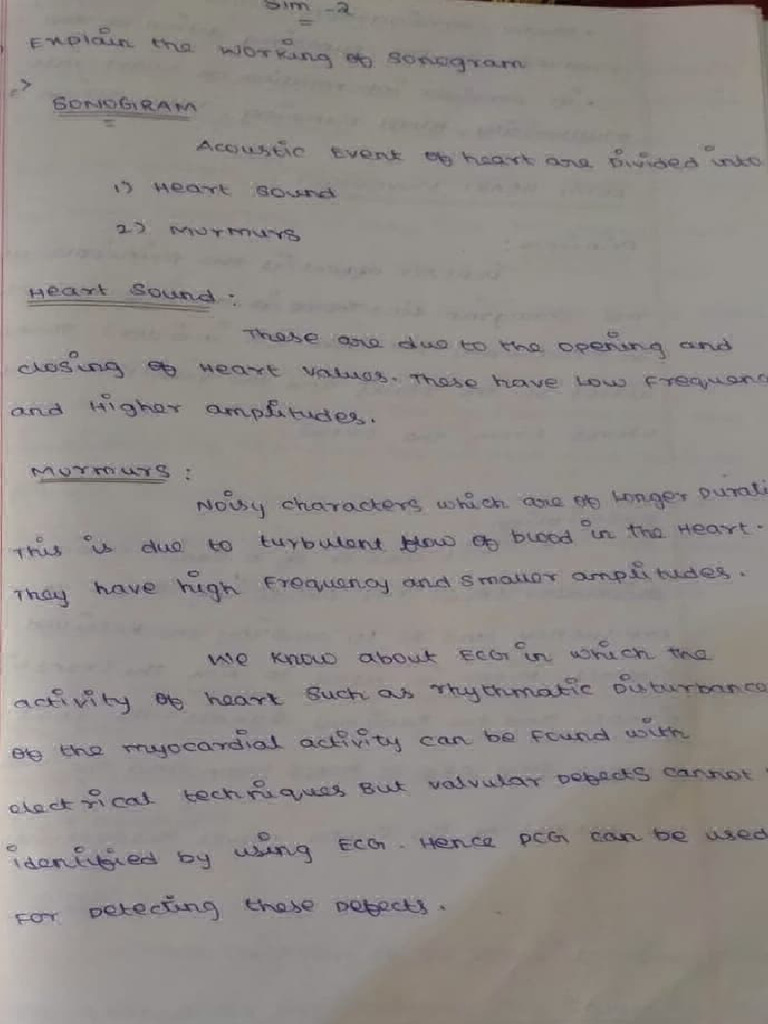 Sim - 2
Explain the working of Sonogram
SONOGRAM
Acoustic Event of heart are Divided into
1) Heart Sound
2) Murmurs
Heart Sound :
These are due to the opening and
closing of Heart values. These have Low Frequenc
and Higher amplitudes.
Murmurs :
Noisy characters which are of Longer Durati
This is due to turbulent flow of blood in the Heart.
They have high Frequency and smaller amplitudes.
We know about ECG in which the
activity of heart such as rhythmatic Disturbance
of the myocardial activity can be found with
electrical techniques But valvular Defects cannot
identified by using ECG. Hence PCG can be used
For Detecting these Defects.